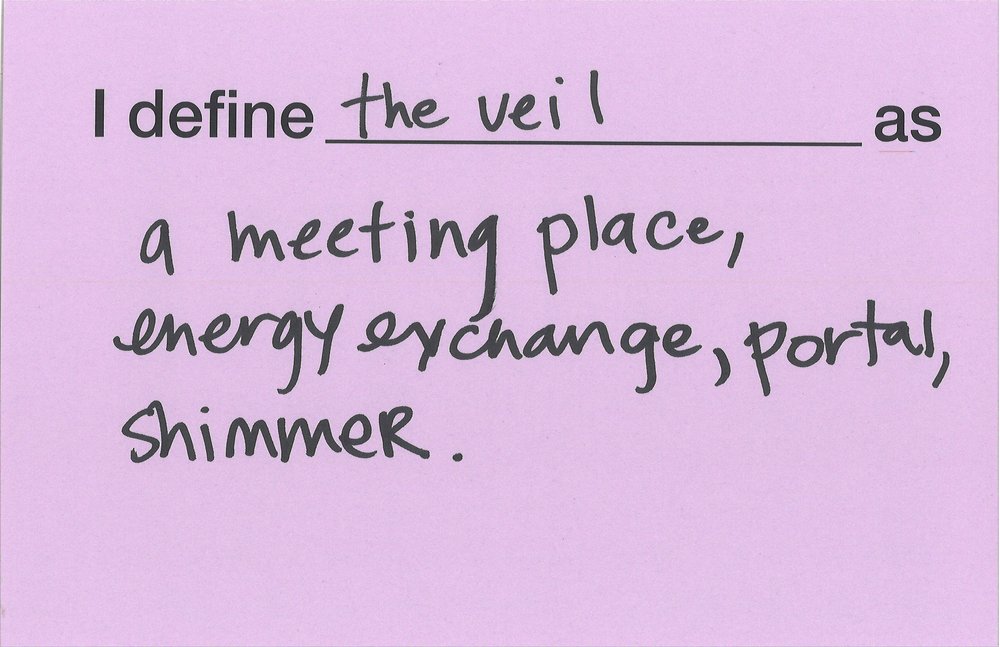 I define the veil as
a meeting place,
energy exchange, portal,
shimmer.